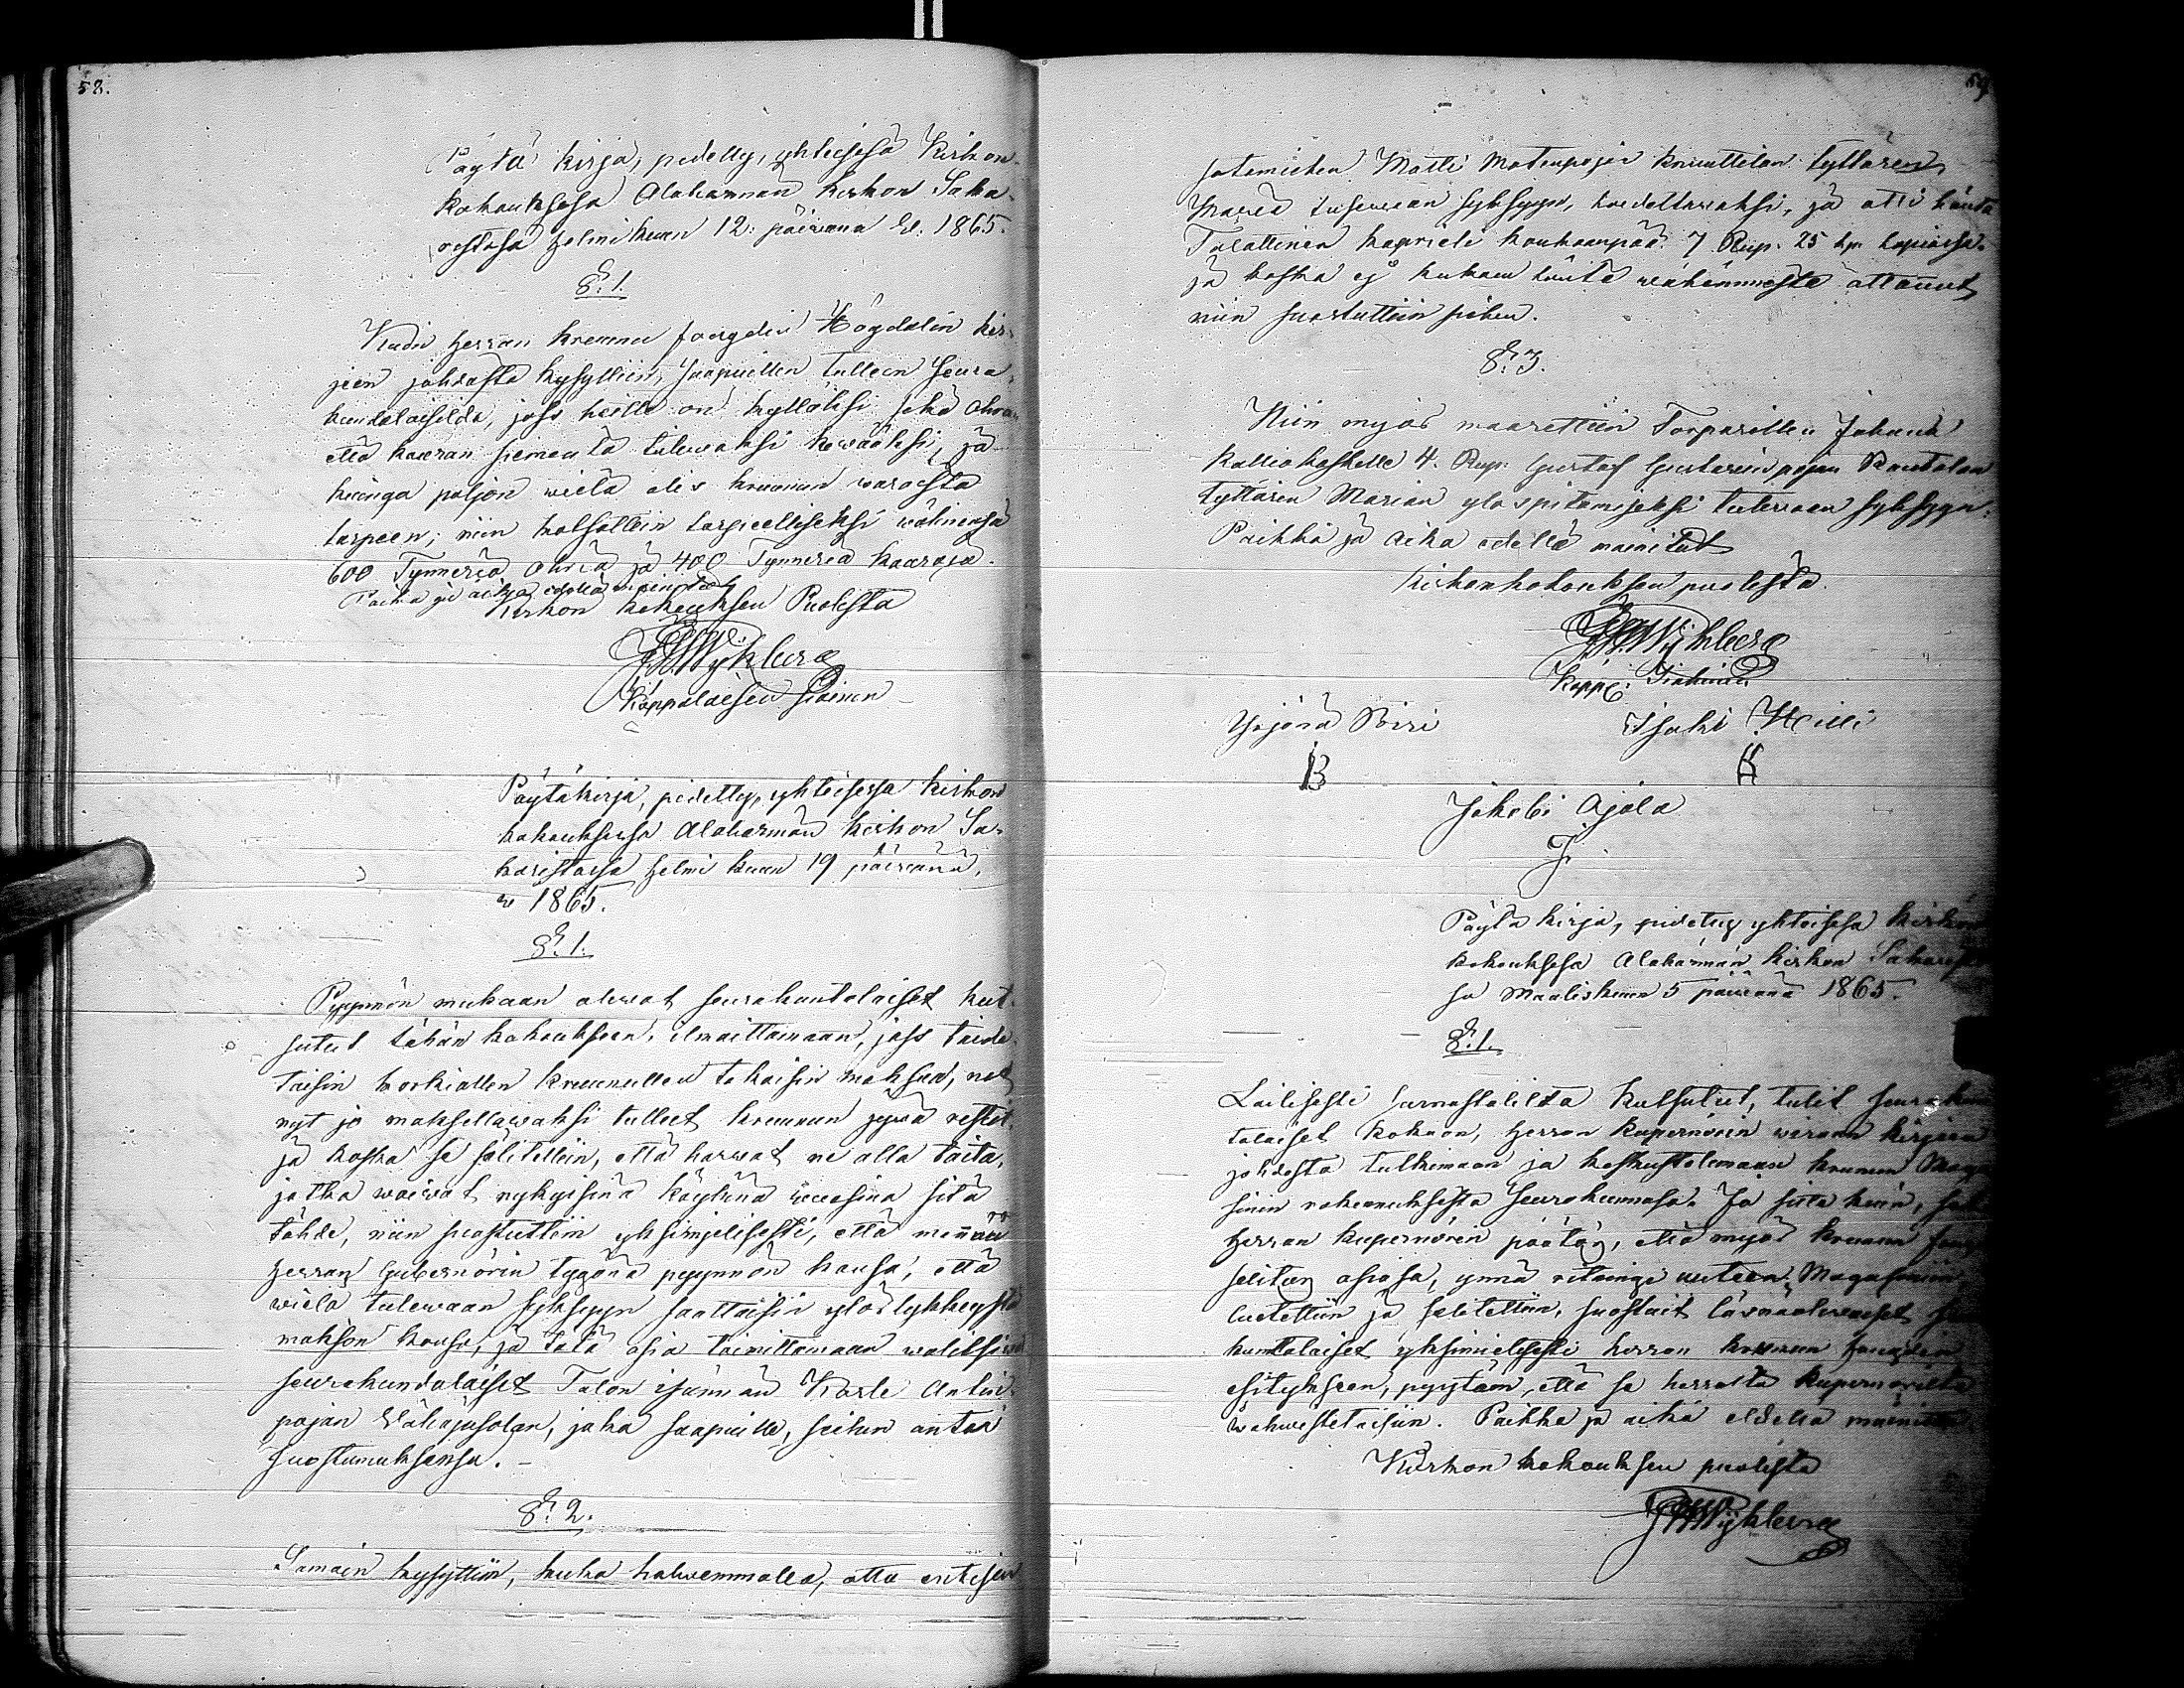 58.
Päytä kirja, pidetty, yhteisesä Kirkon
kokouksesa Alaharman kirkon Saka-
restosa Helmi kuun 12. päiwänä W. 1865.
§. 1.
Kuin Herran kruunu fougdin Högdalin kir-
jeen johdosta kysyttiin, saapuillen tulleen Seura-
kundalaisilda, joss heillä on kylläksi sekä ohran
että kauran siementä tulewaksi kewääksi, ja
kuinga paljon wielä olis kruunun waroista
tarpeen; niin katsottiin tarpeelliseksi wähinensä
600 Tynneriä Ohria ja 400 Tynneriä kauroja.
Paikka ja aika edellä mainitut
Kirkon kokouksen Puolesta
Wykberg
Kappalaisen siainen
Päytäkirja, pidetty, yhteisessa kirkon
kokouksessa Alaharman kirkon Sa-
karistossa Helmi kuun 19 päiwänä,
w 1865.
§. 1.
Pyynnön mukaan olewat seurakuntalaiset kut-
sutut tähän kokoukseen, ilmaittamaan, joss taide-
taisin korkiallen kruunullen takaisin maksaa, net
nyt jo maksettawaksi tulleet kruunun jywä restit,
ja koska se selitettiin, että harwat ne olla taita,
jotka woiwat nykyisinä käyhinä wuosina sitä
tähdä, niin suostuttiin yksimjelisesti, että mennää
Herran Gubernörin tygönä pyynnön kansa, että
wielä tulewaan syksyyn saattaisiin ylös lykkäystä
makson kansa, ja tätä asia toimittamaan walitsiwat
seurakundalaiset Talon isännän Kaarle Antin-
pojan Wähäjusolan, joka saapuilla, siihen antoi
Suostumuksensa. -
§. 2.
Samain kysyttiin, kuka halwemmalla, otta entisen
59
sotamiehen Matti Matinpojan Knuuttilan tyttären
Maria tulewaan syksyyn, hoidettawaksi, ja otti häntä
Talollinen Kaprieli Koukaanpää 7 Rup. 25 kp.
ja koska ej kukaan häntä wähemmästä ottanut
niin suostuttiin siihen.
§. 3.
Niin myös määrättiin Torparillen Johank
Kalliokoskelle 4. Rup. Gustaf Gustawin pojan Rautalan
tyttären Marian ylöspitämiseksi tulewaan syksyyn.
Paikka ja Aika edellä mainitut
Kirkonkokouksen puolesta.
Wykberg
Kapp:
Yrjänä Piri Isaki Heilli
Jakobi Ajala
Päytä kirja, pidetty yhteisesä kirkon
kokouksesa Alaharman kirkon Sakaris-
sa Maaliskuun 5 päiwänä 1865.
§. 1.
Lailisesti Saarnastolilda kutsutut, tulit seurakun
talaiset kokoon, Herran Kupernörin wiraan kirjan
johdosta tutkimaan ja keskustelemaan kruunun Maga
sinin rakennuksesta Seurakunnasa. Ja siitä kuin,
Herran Kupernörin päätös, että myös kruunun foug
selitys asiasa, ynnä ritningi uuteen Magasiniin
luetettiin ja selitettiin, suostuit läsnäolewaiset seura
kuntalaiset yksimielisesti herran kruunun fougdin
esitykseen, pyytäin, että se herralta Kupernörilta
wahwistetaisiin. Paikka ja aika eldellä mainitut
Kirkon kokouksen puolesta
Wykberg